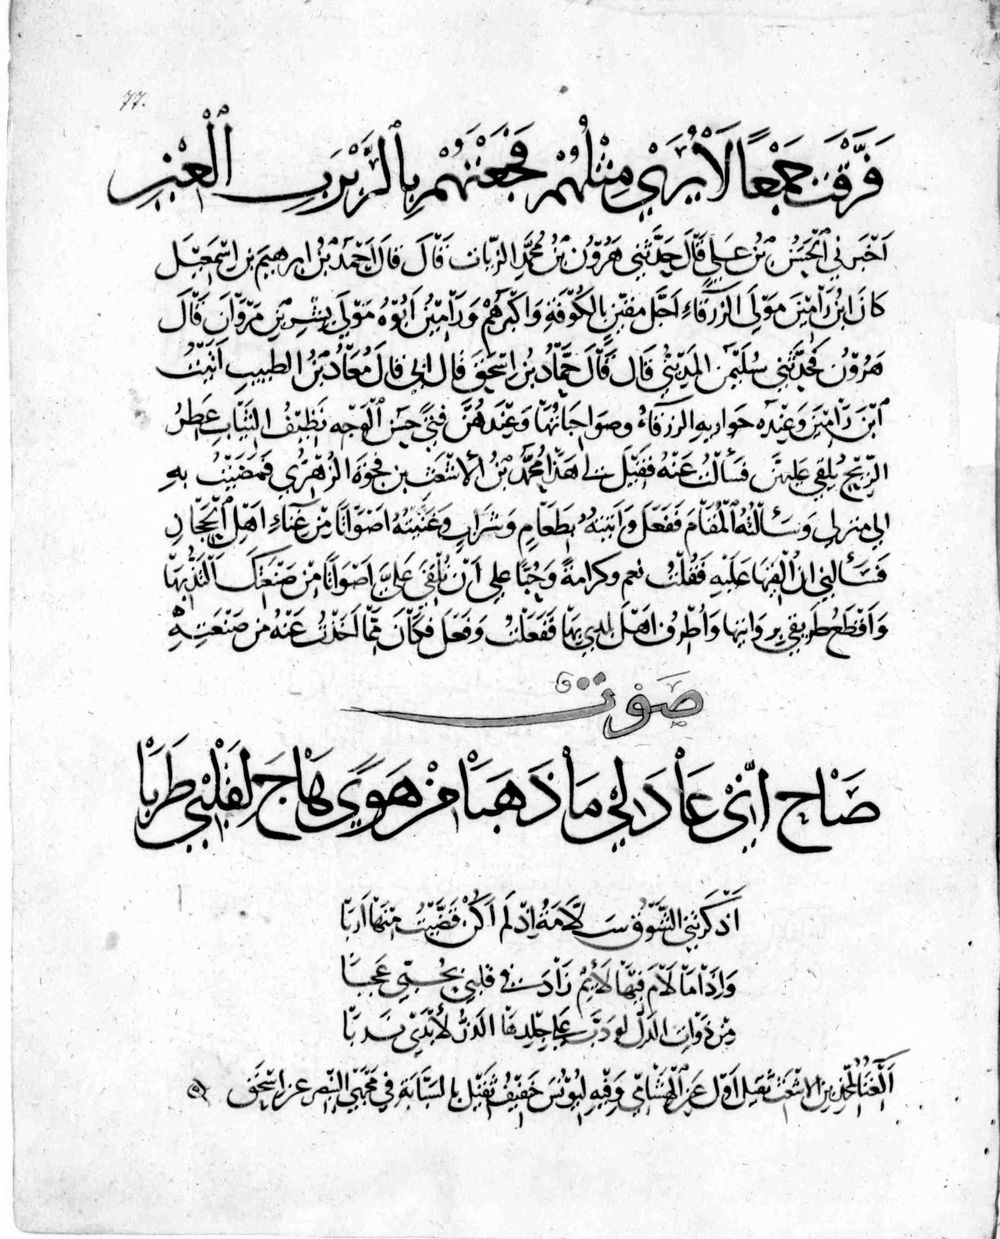 77.
فَرَّقْتَ جَمْعًا لَا يُرَى مِثْلُهُمْ فَجَعْتَهُمْ بِالرَّبْرَبِ الْعِيْنِ
اَخْبَرَنِي الْحَسَنُ بْنُ عَلِيٍّ قَالَ حَدَّثَنِي هَرُوْنُ بْنُ مُحَمَّدِ الزيّات قَالَ قالَ اَحْمَدُ بْنُ ابرهيم بن اِسْمَعِيْلَ
كَانَ ابْنُ رَامِيْنَ مَوْلَى الزَّرْقَاءِ اَجَلَّ مقيّن بِالكُوْفَةِ وَاَكْبَرَهُمْ وَرَامِيْنُ اَبُوْهُ مَوْلَى بِشْرِ بْنِ مَرْوَانَ قَالَ
هَرُوْنُ فَحَدَّثَنِي سُلَيْمٰنُ المَدِيْنِيُّ قَالَ قَالَ حَمَّادُ بْنُ اِسْحٰقَ قَالَ ابي قَالَ مُعَاذُ بْنُ الطبيب اَتَيْتُ
ابْنَ رَامِيْنَ وَعِنْدَهُ جَوَارِيهِ الزَّرْقَاءُ وَصَوَاحِبَاتُهَا وَعِنْدَهُنَّ فَتًى حَسَنُ الْوَجْهِ نَظِيْفُ الثِّيَابِ عَطِرُ
الرِّيْحِ يُلْقِي عَلَيْهِنَّ فَسَأَلْتُ عَنْهُ فَقِيْلَ لِي هَذَا مُحَمَّدُ بْنُ الْاَشْعَثِ بن فُجْوَةَ الزُّهْرِيُّ فَمَضَيْتُ بِهِ
الى منزلي وَسَأَلْتُهُ الْمُقَامَ فَفَعَلَ وَاَتَيْتُهُ بِطَعَامٍ وَشَرَابٍ وَغَنَّيْتُهُ اَصْوَاتًا مِنْ غِنَاءِ اَهْلِ الْحِجَازِ
فَسَأَلَنِي ان اُلْقِيَهَا عَلَيْهِ فَقُلْتُ نعم وَكَرَامَةً وَحُبًّا عَلَى اَنْ تُلْقِيَ عَلَيَّ اَصْوَاتًا مِنْ صَنْعَتِكَ اَلْتَذُّ بِهَا
وَاَقْطَعُ طَرِيقِي بِرِوَايَتِهَا وَاُطْرِفُ اَهْلَ بلدي بِهَا فَفَعَلْتُ وَفَعَلَ فَكَانَ مِمَّا اَخَذْتُ عَنْهُ مِنْ صَنْعَتِهِ
صَوْت
صَاحِ اِنِّي عَادَ لِي مَا ذَهَبَا مِنْ هَوًى هَاجَ لِقَلْبِي طَرَبَا
اَذْكَرَتْنِي الشَّوْقَ سَلَّامَةُ اِذْ لَمْ اَكُنْ قَضَّيْتُ مِنْهَا اَرَبَا
وَاِذَا مَا لَامَ فِيْهَا لَائِمٌ زَادَ فِي قَلْبِي بِحُبِّي عَجَبَا
مِنْ ذَوَاتِ الدَّلِّ لَوْ دَبَّ عَلَى جِلْدِهَا الذَّرُّ لَأَبْدَى نَدَبَا
اَلْغِنَاءُ لِمُحَمَّدِ بْنِ الاشعث ثَقِيْل اَوّل عَنِ الْهِشَامِيِّ وَفِيْهِ لِيُوْنُسَ خَفِيْفُ ثَقِيْلٍ بِالسَّبَّابَةِ فِي مَجْرَى البِنْصِرِ عَنْ اِسْحٰقَ